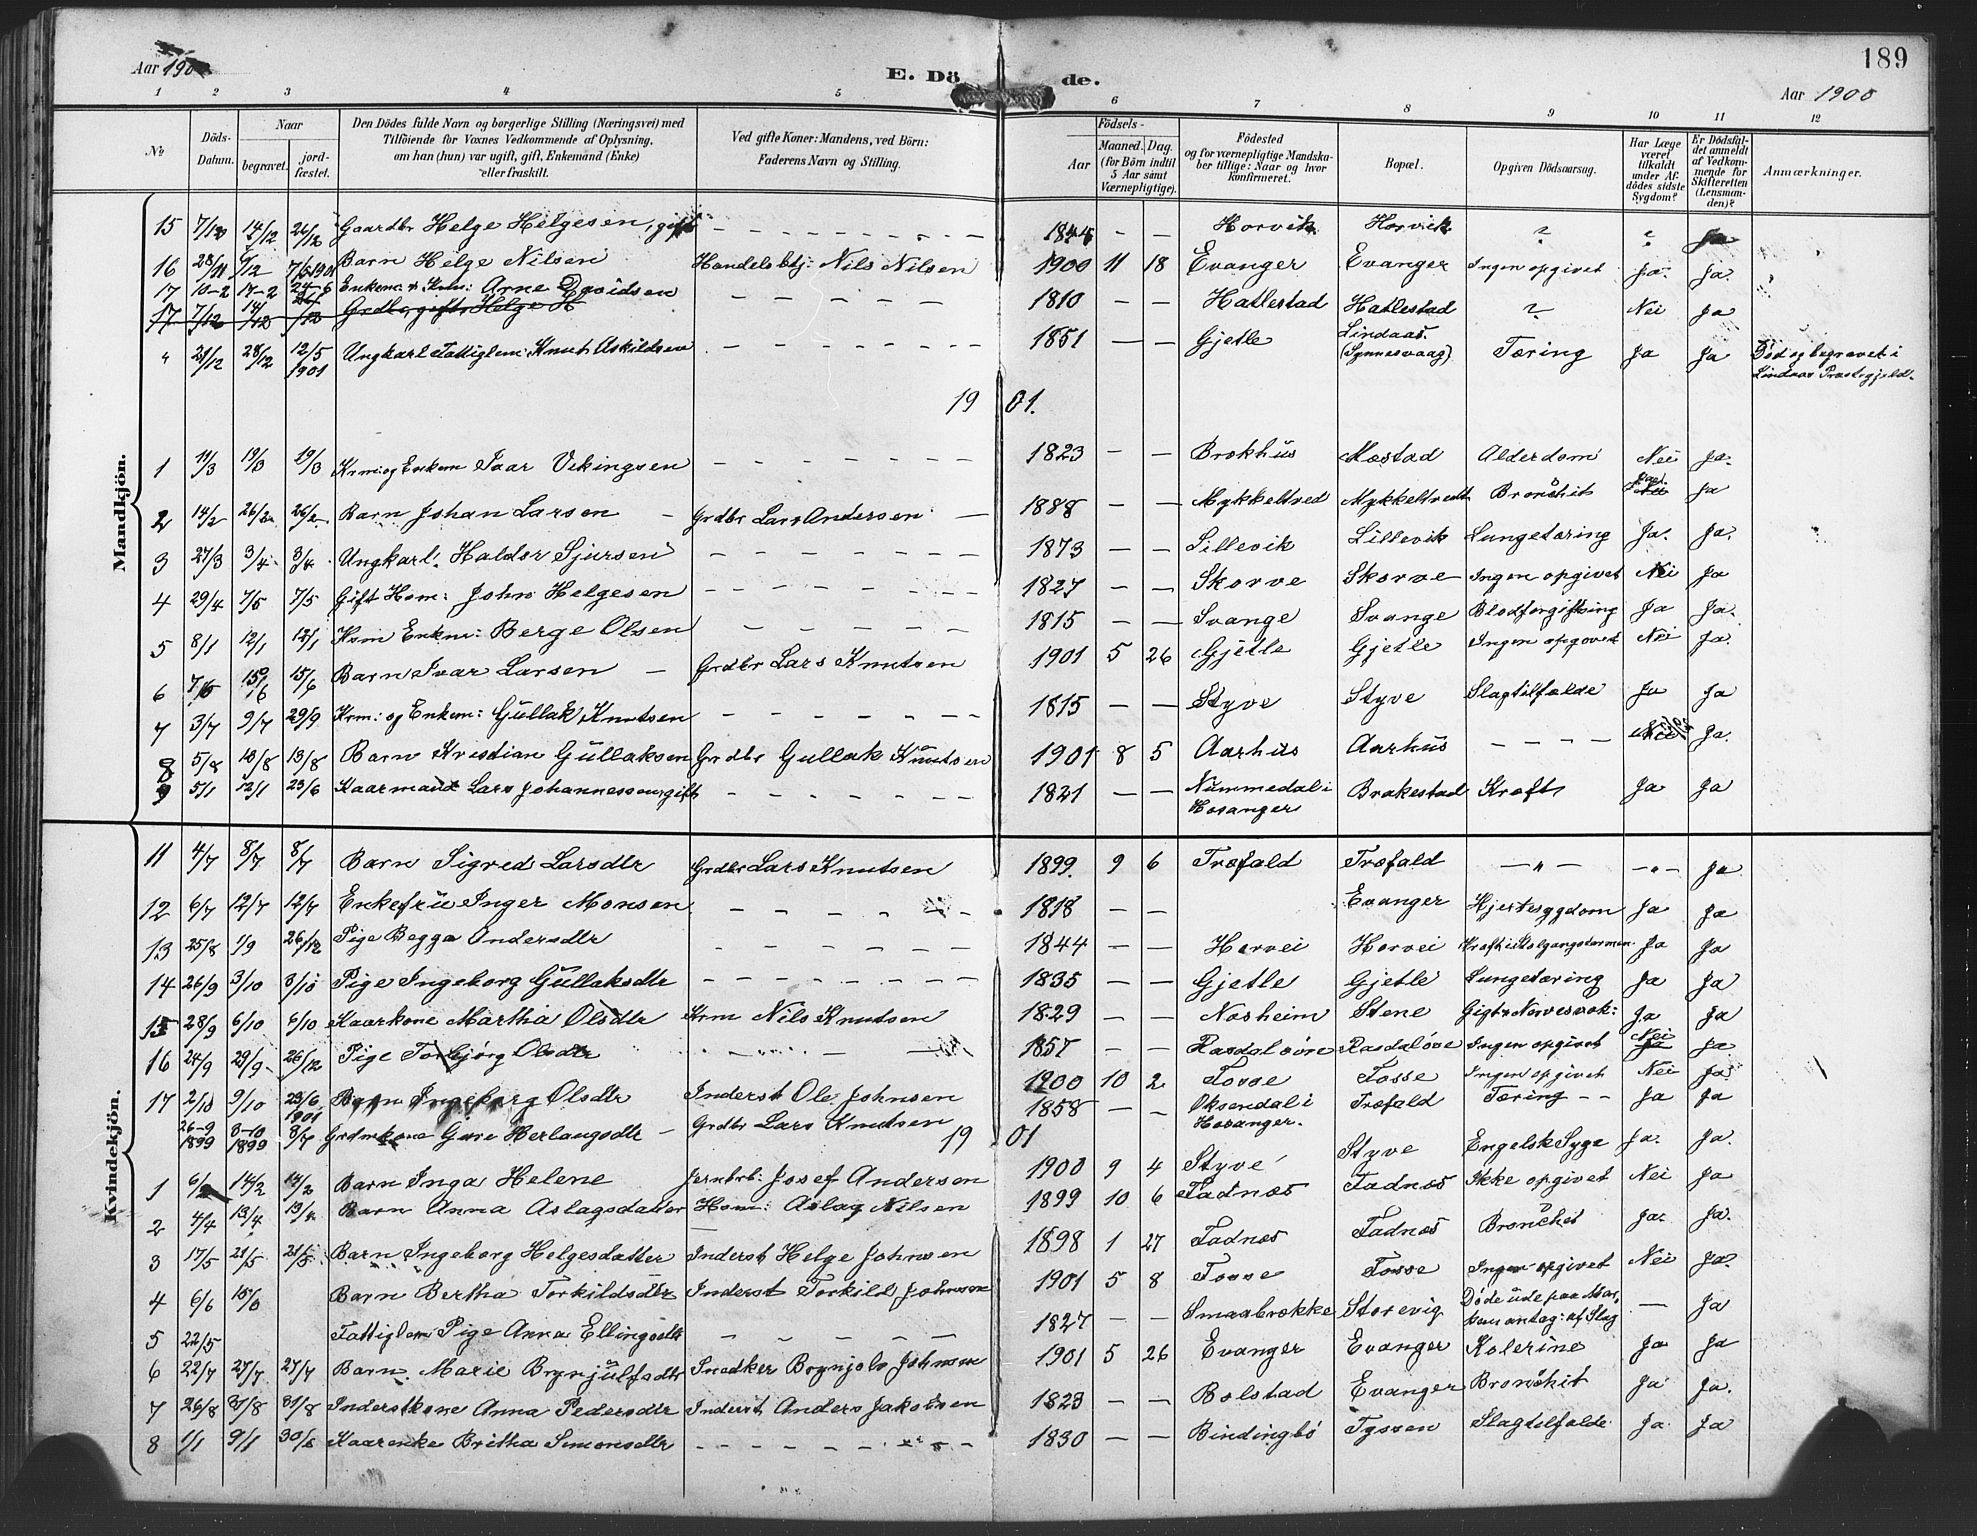 189
Aar 190
E. Dö de.
Aar 1900
1 2 3 4 5 6 7 8 9 10 11 12
No
Döds-Datum.
Naar
begravet.
jord-fæstet.
Den Dödes fulde Navn og borgerlige Stilling (Næringsvei) med Tilföiende for Voxnes Vedkommende af Oplysning, om han (hun) var ugift, gift, Enkemand (Enke) eller fraskilt.
Ved gifte Koner: Mandens, ved Börn: Faderens Navn og Stilling.
Födsels-
Aar
Maaned. Dag.
(for Börn indtil 5 Aar samt Værnepligtige).
Födested og for værnepligtige Mandskaber tillige: Naar og hvor konfirmeret.
Bopæl.
Opgiven Dödsaarsag.
Har Læge været tilkaldt under Afdödes sidste Sygdom?
Er Dödsfaldet anmeldt af Vedkommende for Skifteretten (Lensmanden)?
Anmærkninger.
Mandkjön.
15 7/12 14/12 26/12 Gaardbr Helge Helgesen, gift – – – 1844 – – Horvik Horvik ? Ja
16 28/11 /12 7/6 1901 Barn Helge Nilsen Handelsbtj: Nils Nilsen 1900 11 18 Evanger Evanger Ingen opgivet Ja. Ja.
17 10-2 17-2 24-6 Enkem. & Kaarm: Arne Davidsen – – – 1810 – – Hatlestad Hatlestad ? Nei Ja
17 7/12 14/12 /12 Grdbr, gift, Helge H
" 21/12 28/12 12/5 1901 Ungkarl Fattiglem: Knut Askildsen – – – 1851 – – Gjetle Lindaas (Synnesvaag) Tæring Ja Ja Död og begravet i Lindaas Præstegjeld.
19 01.
1 11/3 19/3 19/3 Krm: og Enkem Ivar Vikingsen – – – 1823 – – Brokhus Mæstad Alderdom Nei Ja.
2 14/2 26/2 26/2 Barn Johan Larsen – Grdbr Lars Andersen – 1888 – – Mykkeltved Mykkeltvedt Bronchit Nei Ja
3 27/3 3/4 3/4 Ungkarl. Haldor Sjursen – – – 1873 – – Lillevik Lillevik Lungetæring Ja. Ja.
4 29/4 7/5 7/5 Gift Hom: John Helgesen – – – 1827 – – Skorve Skorve Ingen opgivet Nei Ja
5 8/1 12/1 12/1 Krm Enkm: Berge Olsen – – – 1815 – – Svange Svange Blodforgiftning Ja Ja.
6 7/6 15/6 15/6 Barn Ivar Larsen – Grdbr Lars Knutsen 1901 5 26 Gjetle Gjetle Ingen opgivet Nei Ja.
7 3/7 9/7 29/9 Krm: og Enkem: Gullak Knutsen – – – 1815 – – Styve Styve Slagtilfælde Ja Ja
8 5/8 10/8 13/8 Barn Kristian Gullaksen Grdbr Gullak Knutsen 1901 8 5 Aarhus Aarhus – – – Nei Ja.
9 5/1 12/1 23/6 Kaarmand Lars Johannessen gift – – – 1821 – – Nummedal i Hosanger Brakestad Kræft Ja Ja
Kvindekjön.
11 4/7 8/7 8/7 Barn Sigred Larsdtr Grdbr Lars Knutsen 1899. 9 6 Træfald Træfald – " – – " – Ja
12 6/7 12/7 12/7 Enkefru Inger Monsen – – – 1818 – – Evanger Hjertesygdom Ja Ja
13 25/8 1/9 26/12 Pige Begga Andersdtr – – – 1844 – – Horvei Horvei Kræft i Ja Ja
14 26/9 3/10 3/10 Pige Ingeborg Gullaksdtr – – – 1835 – – Gjetle Gjetle Lungetæring Ja Ja
15 28/9 6/10 6/10 Kaarkone Martha Olsdtr Krm Nils Knutsen 1829 – – Nosheim Stene Gigt & Nervesvæk: Ja Ja
16 24/9 29/9 26/12 Pige Torbjørg Olsdtr – – – 1857 – – Rasdaløvre Rasdaløve Ingen opgivet Nei Ja Ja
17 2/10 9/10 23/6 1901 Barn Ingeborg Olsdtr Inderst Ole Johnsen 1900 10 2 Fosse Fosse Ingen opgivet Nei Ja
26-9 1899 3-10 1899 8/7 Grdmkone Guro Herlaugsdtr – Grdbr Lars Knutsen 1858 – – Oksendal i Hosanger. Træfald Tæring – – Ja Ja
19 01
1 6/2 14/2 14/2 Barn Inga Helene Jernbrb: Josef Andersen 1900 9 4 Styve Styve Engelsk Syge Ja. Ja.
2 4/4 13/4 13/4 Barn Anna Aslagsdatter Hom: Aslag Nilsen 1899 10 6 Fadnæs Fadnæs Ikke opgivet Nei Ja
3 17/5 21/5 21/5 Barn Ingeborg Helgesdatter Inderst Helge Johnsen 1898 1 27 Fadnæs Fadnæs Bronchit Ja. Ja.
4 6/6 15/6 Barn Bertha Torkildsdtr Inderst Torkild Johnsen 1901 5 8 Fosse Fosse Ingen opgivet Nei Ja.
5 22/5 Fattiglem Pige Anna Ellingsdtr – – – 1827 – – Smaabrække Storevig Döde ude paa antag: af Slag – Ja
6 22/7 27/7 27/7 Barn. Marie Brynjulfsdtr Snedker Brynjolv Johnsen 1901 5 26 Evanger Evanger Kolerine Ja Ja
7 26/8 31/8 31/8 Inderstkone Anna Pedersdtr Inderst Anders Jakobsen 1823 – – Bolstad Evanger Bronchit Ja Ja.
8 1/1 9/1 30/6 Kaarenke Britha Simonsdtr – – – 1830 – – Bindingbø Tyssen Slagtilfælde Ja Ja